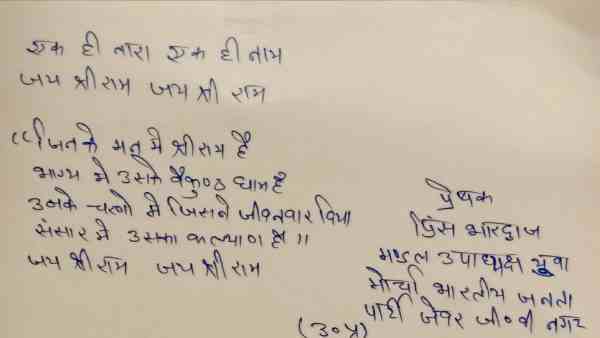 एक ही नारा एक ही नाम
जय श्री राम जय श्री राम
"जिनके मन मे श्री राम है
भाग्य मे उसके वैकुण्ठ धाम है
उनके चरणो मे जिसने जीवनवार दिया
संसार मे उसका कल्याण है"
जय श्री राम जय श्री राम
प्रेषक
प्रिंस भारद्वाज
मण्डल उपाध्यक्ष युवा
मोर्चा भारतीय जनता
पार्टी जेवर जी०बी नगर
(उ०प्र)